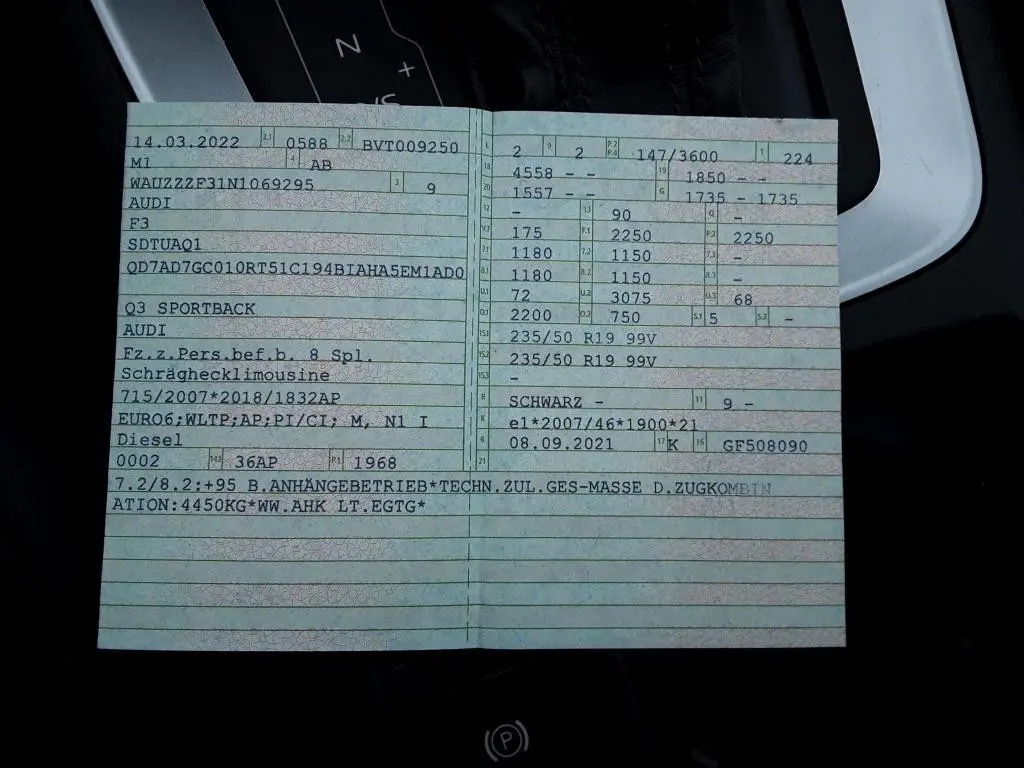 N
+
14.03.2022 2.1 0588 2.2 BVT009250
M1 4 AB
WAUZZZF31N1069295 3 9
AUDI
F3
SDTUAQ1
QD7AD7GC010RT51C194BIAHA5EM1AD0
Q3 SPORTBACK
AUDI
Fz.z.Pers.bef.b. 8 Spl.
Schräghecklimousine
715/2007*2018/1832AP
EURO6;WLTP;AP;PI/CI; M, N1 I
Diesel
0002 14.1 36AP P.1 1968
L 2 9 2 P.2 P.4 147/3600 T 224
18 4558 – – 19 1850 – –
20 1557 – – G 1735 – 1735
12 – 13 90 Q –
V.7 175 F.1 2250 F.2 2250
7.1 1180 7.2 1150 7.3 –
8.1 1180 8.2 1150 8.3 –
U.1 72 U.2 3075 U.3 68
O.1 2200 O.2 750 S.1 5 S.2 –
15.1 235/50 R19 99V
15.2 235/50 R19 99V
15.3 –
R SCHWARZ – 11 9 –
K e1*2007/46*1900*21
6 08.09.2021 17 K 16 GF508090
21
7.2/8.2:+95 B.ANHÄNGEBETRIEB*TECHN.ZUL.GES-MASSE D.ZUGKOMBIN
ATION:4450KG*WW.AHK LT.EGTG*
P